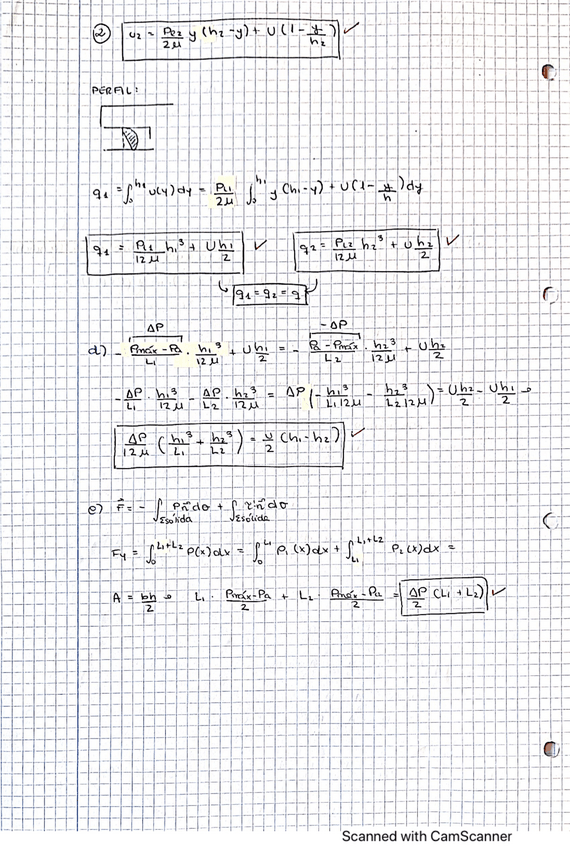 ② u₂ = Pl2/2μ y (h₂-y) + U (1 - y/h₂) ✓
PERFIL:
q₁ = ∫₀^h₁ u(y) dy = Pl1/2μ ∫₀^h₁ y (h₁-y) + U(1 - y/h) dy
q₁ = Pl1/12μ h₁³ + Uh₁/2 ✓ q₂ = Pl2/12μ h₂³ + Uh₂/2 ✓
q₁ = q₂ = q
ΔP -ΔP
d) - (Pmáx - Pa)/L₁ · h₁³/12μ + Uh₁/2 = - (Pa - Pmáx)/L₂ · h₂³/12μ + Uh₂/2
-ΔP/L₁ · h₁³/12μ - ΔP/L₂ · h₂³/12μ = ΔP (-h₁³/L₁12μ - h₂³/L₂12μ) = Uh₂/2 - Uh₁/2 →
ΔP/12μ (h₁³/L₁ + h₂³/L₂) = U/2 (h₁-h₂) ✓
e) F⃗ = - ∫Σsólida Pn⃗dσ + ∫Σsólida τ'n⃗dσ
Fy = ∫₀^L₁+L₂ P(x)dx = ∫₀^L₁ P₁(x)dx + ∫L₁^L₁+L₂ P₂(x)dx =
A = bh/2 → L₁ · (Pmáx-Pa)/2 + L₂ · (Pmáx-Pa)/2 = ΔP/2 (L₁+L₂) ✓
Scanned with CamScanner